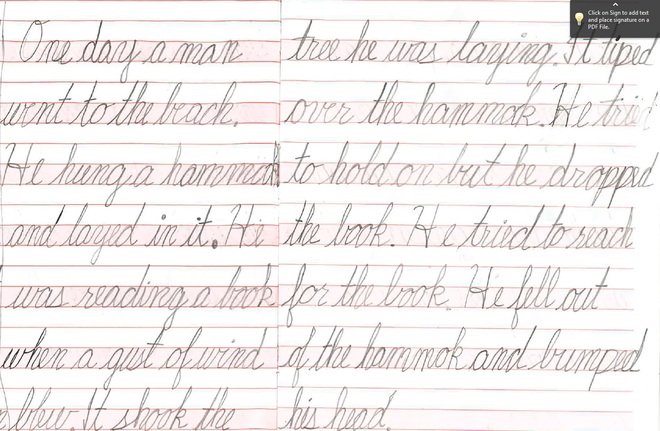 One day a man
went to the beach.
He hung a hammok
and layed in it. He
was reading a book
when a gust of wind
blew. It shook the
tree he was laying. It tiped
over the hammok. He tried
to hold on but he dropped
the book. He tried to reach
for the book. He fell out
of the hammok and bumped
his head.
Click on Sign to add text
and place signature on a
PDF File.